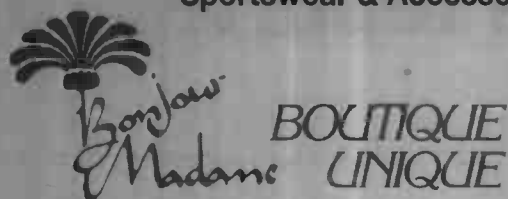 Sportswear & Accesso
Bonjour
Madame
BOUTIQUE
UNIQUE